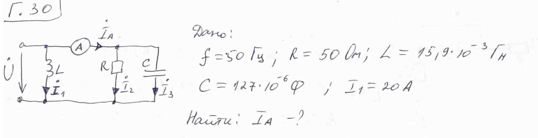 Г.30
İA
A
U̇
L
R
C
İ1
İ2
İ3
Дано:
f=50 Гц ; R = 50 Ом ; L = 15,9·10⁻³ Гн
C = 127·10⁻⁶ Ф ; İ1 = 20А
Найти: İA -?